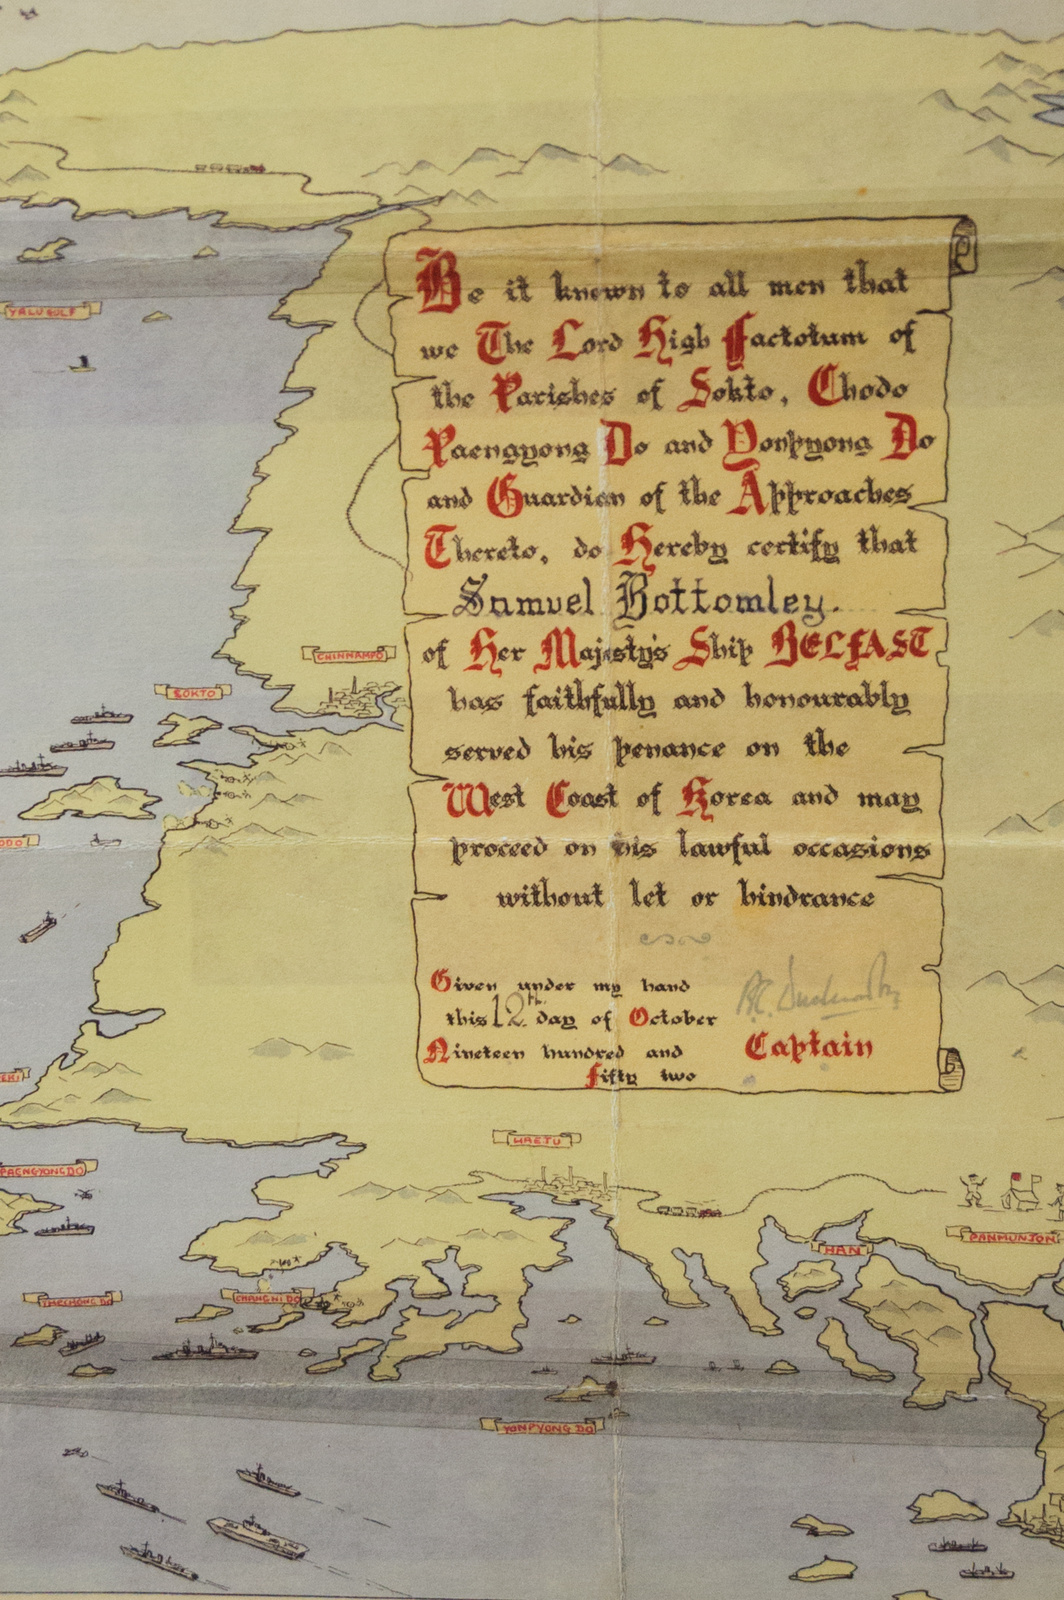 YALU GULF
Be it known to all men that
we The Lord High Factotum of
the Parishes of Sokto, Chodo
Paengyong Do and Yonpyong Do
and Guardian of the Approaches
Thereto, do Hereby certify that
Samuel Bottomley.
of Her Majesty's Ship BELFAST
has faithfully and honourably
served his penance on the
West Coast of Korea and may
proceed on his lawful occasions
without let or hindrance
Given under my hand
this 12th day of October
Nineteen hundred and
Fifty two
Captain
CHINNAMPO
SOKTO
ODO
HAEJU
PAENGYONG DO
PANMUNJON
HAN
TAECHONG DO
CHANGNI DO
YONPYONG DO